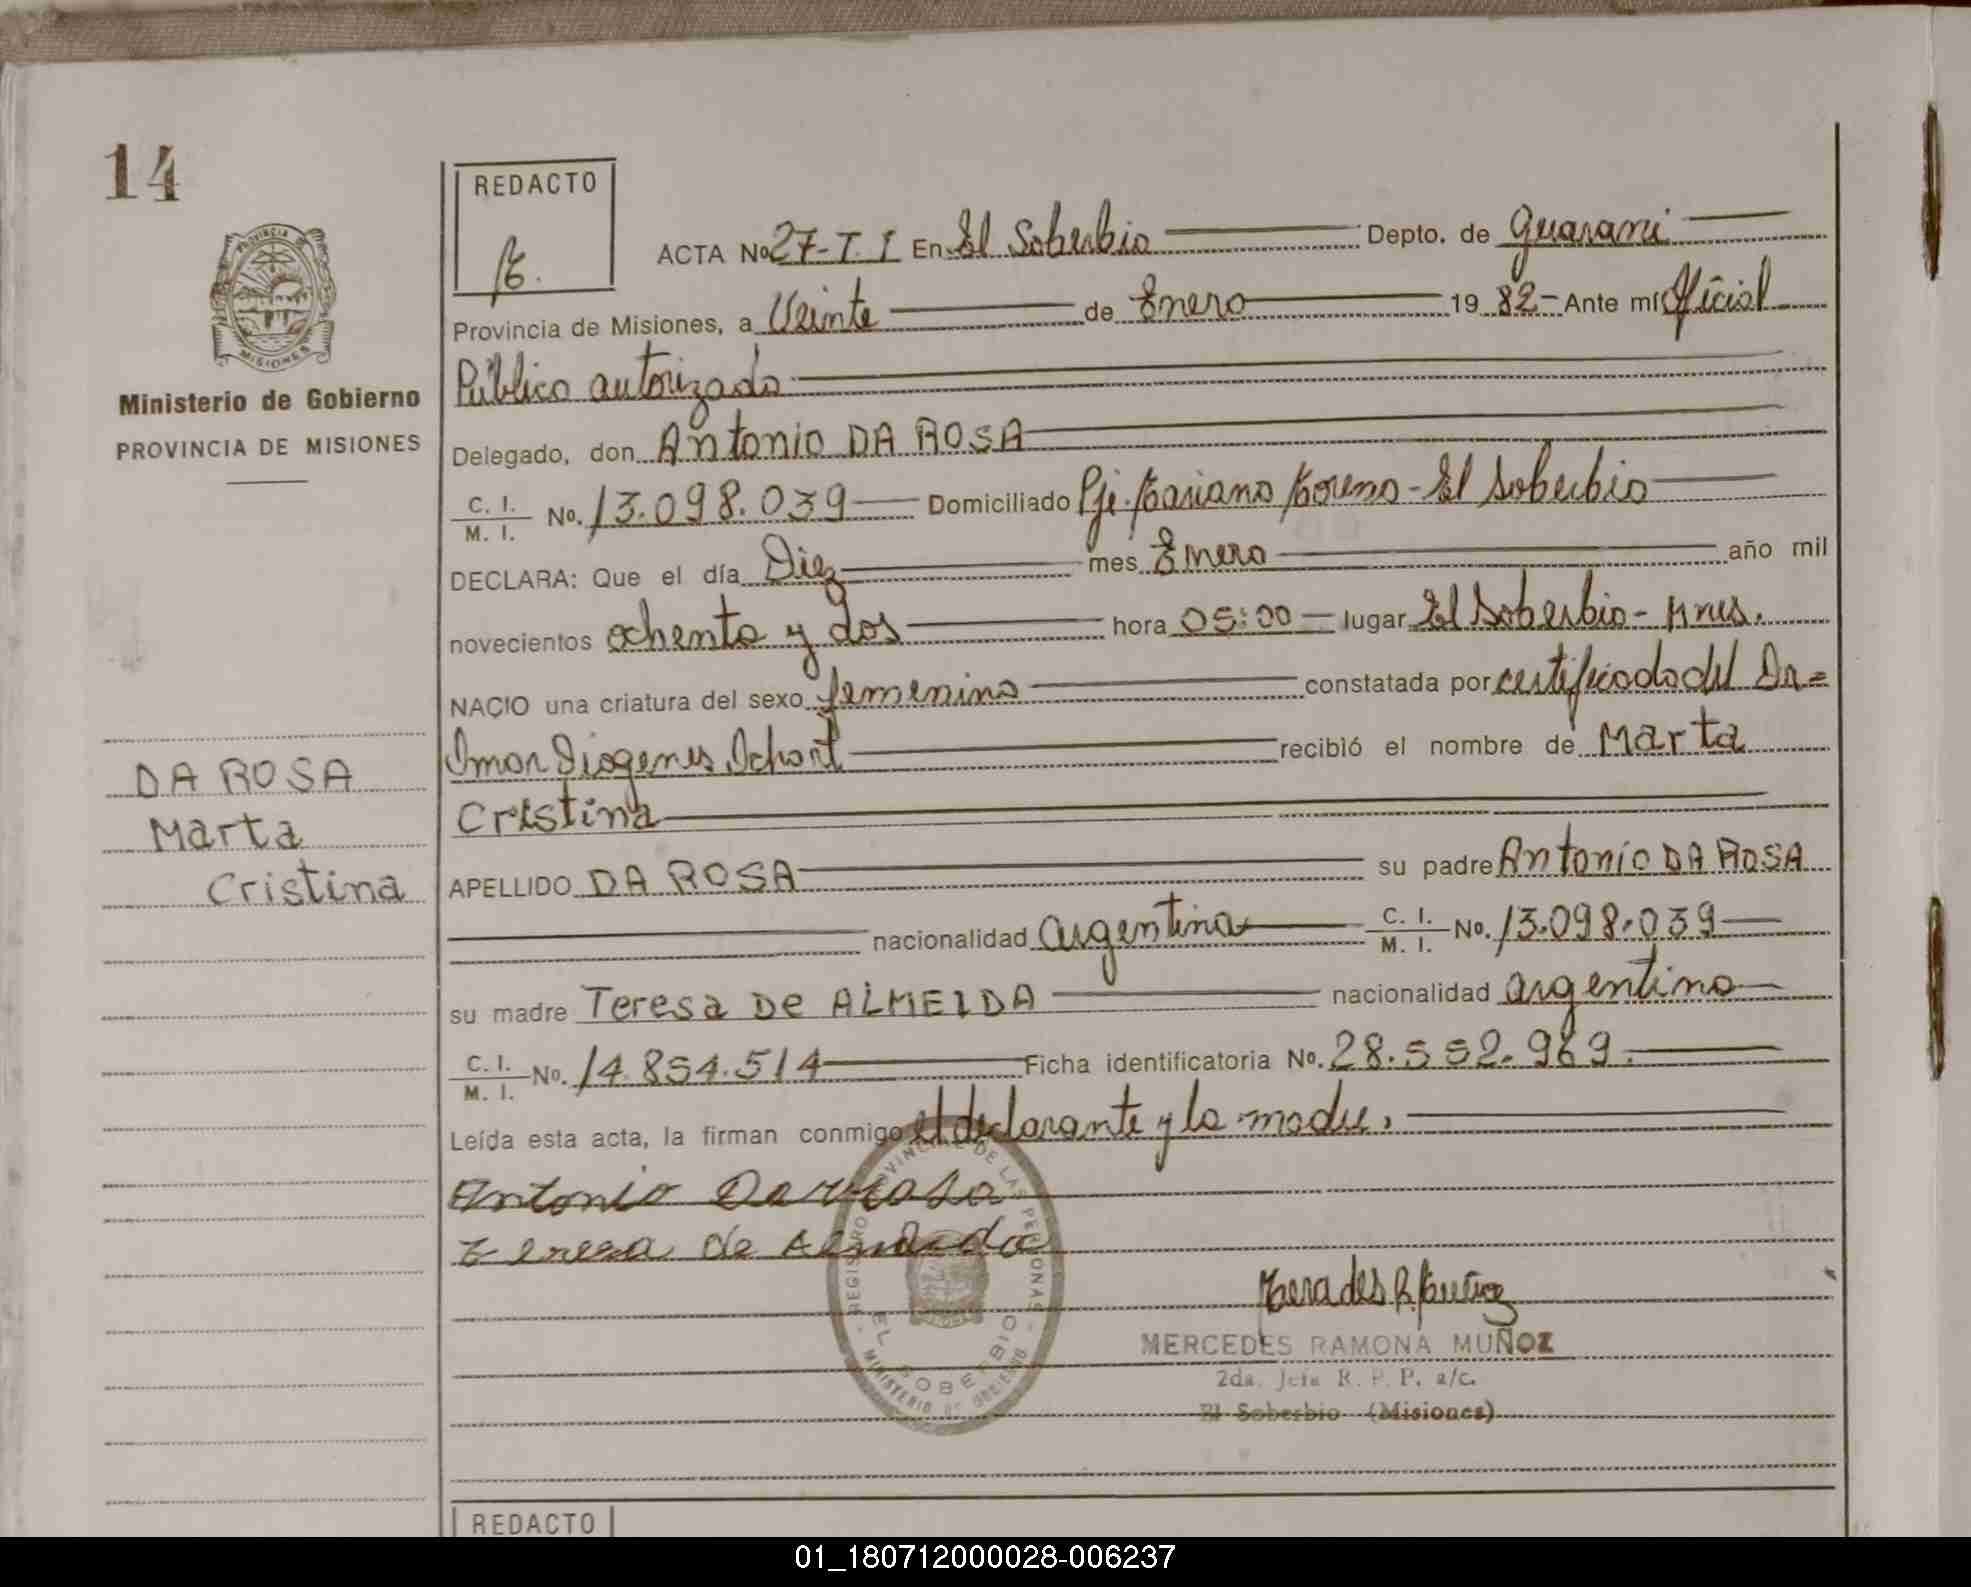 14
REDACTO
ACTA No 27-T.I En El Soberbio Depto. de Guarani
Provincia de Misiones, a Veinte de Enero 1982- Ante mí Oficial
Público autorizado
PROVINCIA DE
MISIONES
Ministerio de Gobierno
PROVINCIA DE MISIONES
Delegado, don Antonio DA ROSA
C. I.
M. I. No. 13.098.039 Domiciliado Pje. Mariano Moreno - El Soberbio
DECLARA: Que el día Diez mes Enero año mil
novecientos ochenta y dos hora 05:00 lugar El Soberbio - Mnes.
NACIO una criatura del sexo femenino constatada por certificado del Dr=
Omar Diogenes recibió el nombre de Marta
Cristina
DA ROSA
Marta
Cristina
APELLIDO DA ROSA su padre Antonio DA ROSA
nacionalidad argentina C. I.
M. I. No. 13.098.039
su madre Teresa De ALMEIDA nacionalidad argentina
C. I.
M. I. No. 14.854.514 Ficha identificatoria No. 28.552.969.
Leída esta acta, la firman conmigo el declarante y la madre.
Antonio Da Rosa
Teresa de Almeida
REGISTRO PROVINCIAL DE LAS PERSONAS
EL SOBERBIO
MINISTERIO DE GOBIERNO
Mercedes R. Muñoz
MERCEDES RAMONA MUÑOZ
2da. Jefa R. P. P. a/c.
El Soberbio (Misiones)
REDACTO
01_180712000028-006237